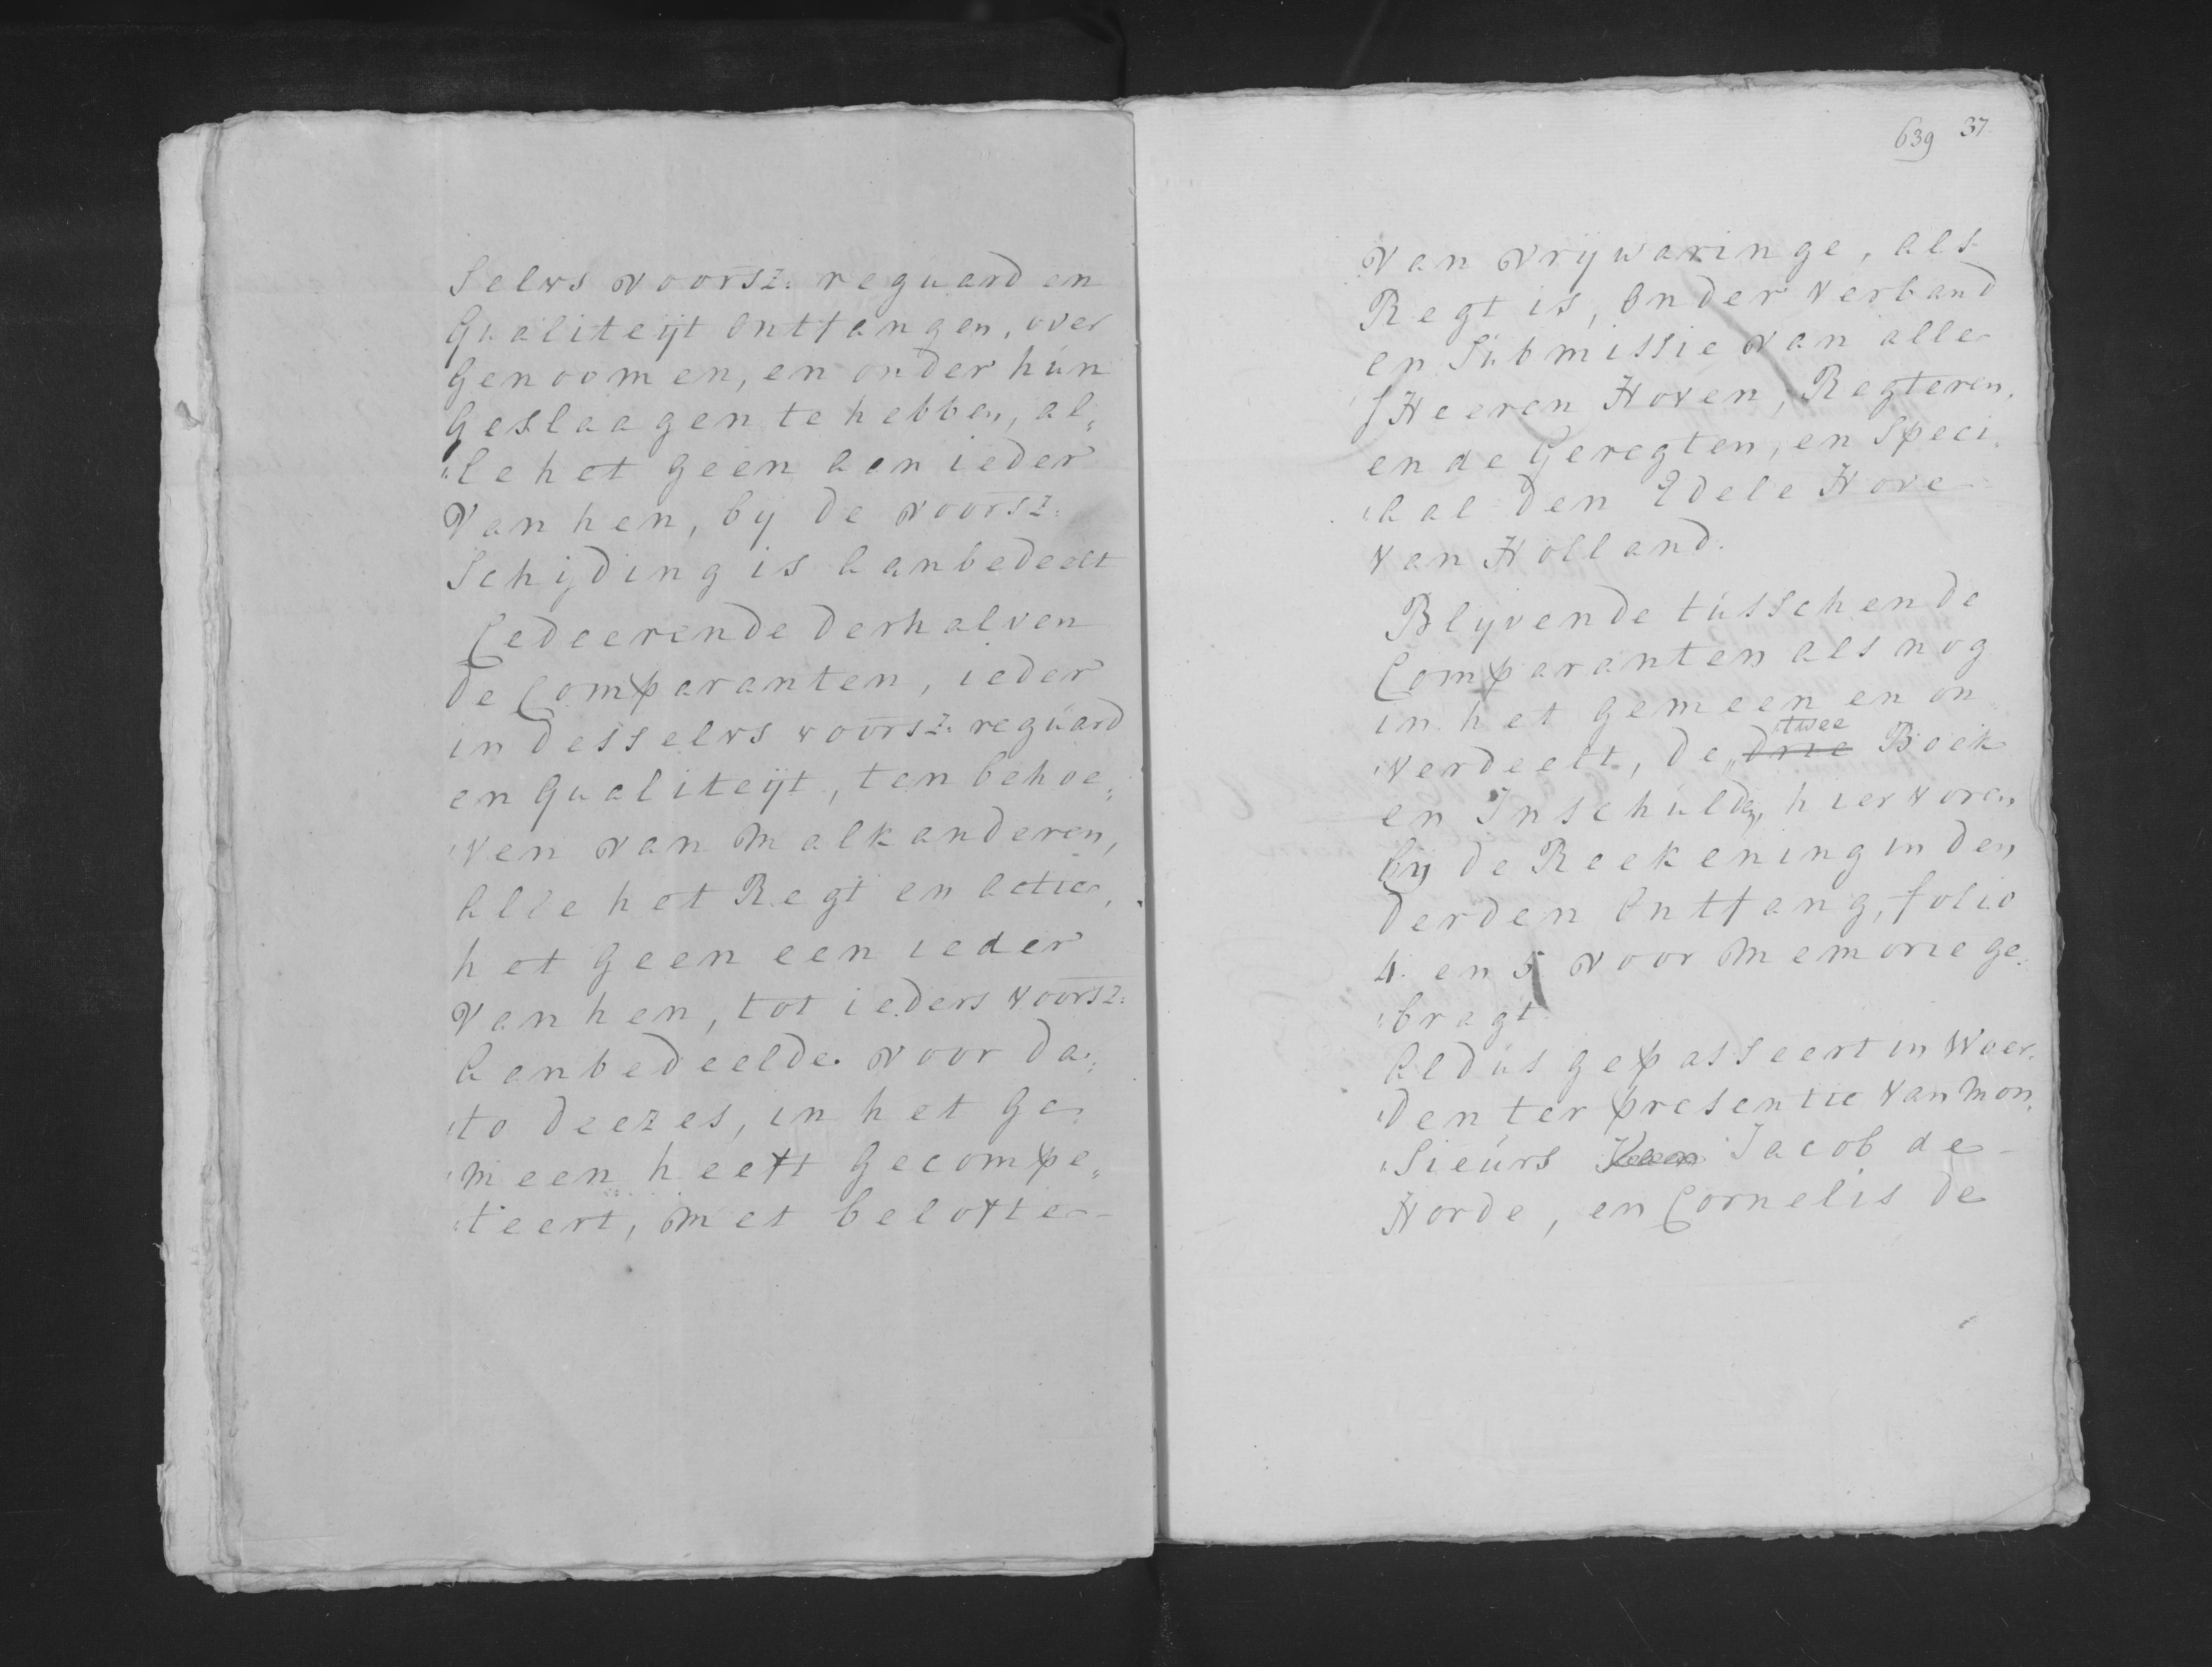 selvs voorsz: reguard en
Qualiteijt ontfangen, over
Genoomen, en onder hún
Geslaagen te hebben, al„
„le het geen aan ieder
Van hen, bij de voorsz:
Schijding is aanbedeelt
Cedeerende derhalven
de Comparanten, ieder
in desselvs voorsz: regúard
en Qualiteijt, ten behoe„
„ven van malkanderen,
alle het Regt en actie,
het geen een ieder
Van hen, tot ieders voorsz:
aanbedeelde voor da„
„to deezes, in het Ge„
„meen heeft Gecompe„
„teert, met belofte
639 37
van vrijwaringe, als
Regt is, onder verband
en Súbmissie van alle
s'Heeren Hoven, Regteren,
ende Geregten, en Speci„
„aal den Edele Hove
van Holland.
Blijvende tússchen de
Comparanten als nog
in het gemeen en on„
twee
„verdeelt, de drie Boek
en Inschúlden, hier voren
bij de Reekening in den
derden ontfang, folio
4. en 5 voor memorie ge„
„bragt.
Aldús gepasseert in Woer„
„den ter presentie van Mon„
„sieúrs Jacob de
Horde, en Cornelis de